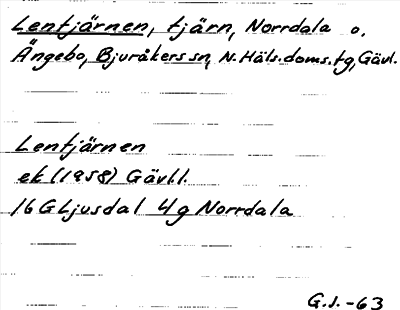 Lentjärnen, tjärn, Norrdala o.
Ängebo, Bjuråkers sn, N.Häls.doms.tg, Gävl.
Lentjärnen
ek (1958) Gävl.l.
16 G Ljusdal 4g Norrdala
G.J. -63